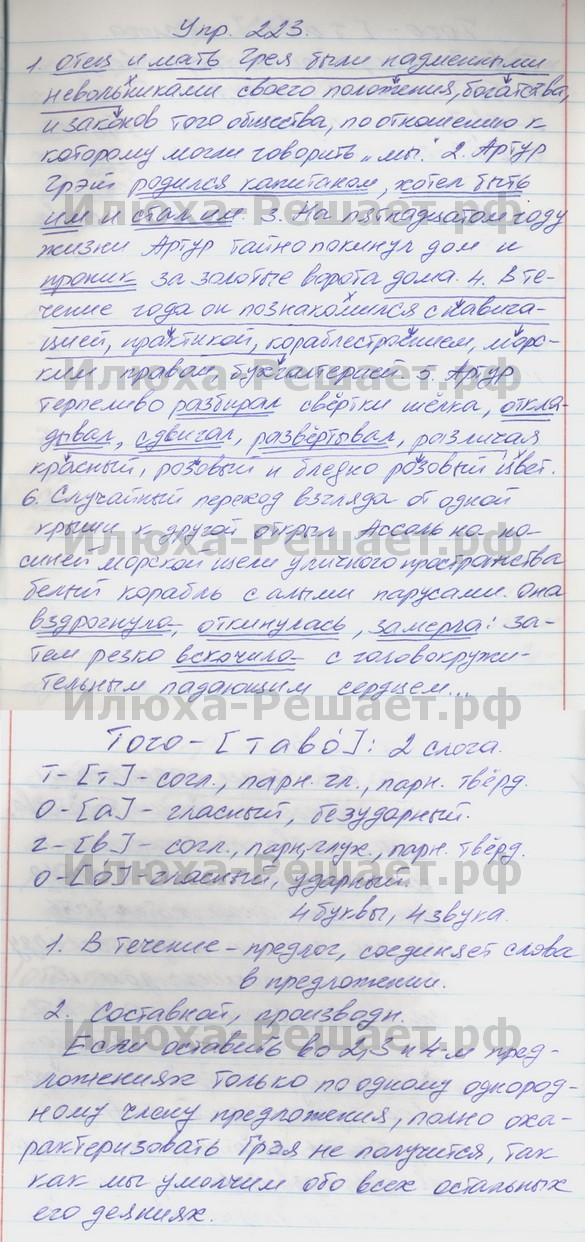 Упр. 223.
1. Отец и мать Грея были надменными
невольниками своего положения, богатства,
и законов того общества, по отношению к
которому могли говорить „мы". 2. Артур
Грэй родился капитаном, хотел быть
им и стал им. 3. На пятнадцатом году
жизни Артур тайно покинул дом и
проник за золотые ворота дома. 4. В те-
чение года он познакомился с навига-
цией, практикой, кораблестроением, морс-
ким правом, бухгалтерией. 5. Артур
терпеливо разбирал свёртки шёлка, откла-
дывал, сдвигал, развёртывал, различая
красный, розовый и бледно розовый цвет.
6. Случайный переход взгляда от одной
крыши к другой открыл Ассоль на
синей морской щели уличного пространства
белый корабль с алыми парусами. Она
вздрогнула, откинулась, замерла: за-
тем резко вскочила с головокружи-
тельным падающим сердцем...
Того - [таво́]: 2 слога.
т - [т] - согл., парн. гл., парн. твёрд.
о - [а] - гласный, безударный.
г - [в] - согл., парн.глух., парн. твёрд.
о - [о́] - гласный, ударный.
4 буквы, 4 звука.
1. В течение - предлог, соединяет слова
в предложении.
2. Составной, производн.
Если оставить во 2, 3 и 4-м пред-
ложениях только по одному однород-
ному члену предложения, полно оха-
рактеризовать Грэя не получится, так
как мы умолчим обо всех остальных
его деяниях.
Илюха-Решает.рф
Илюха-Решает.рф
Илюха-Решает.рф
Илюха-Решает.рф
Илюха-Решает.рф
Илюха-Решает.рф